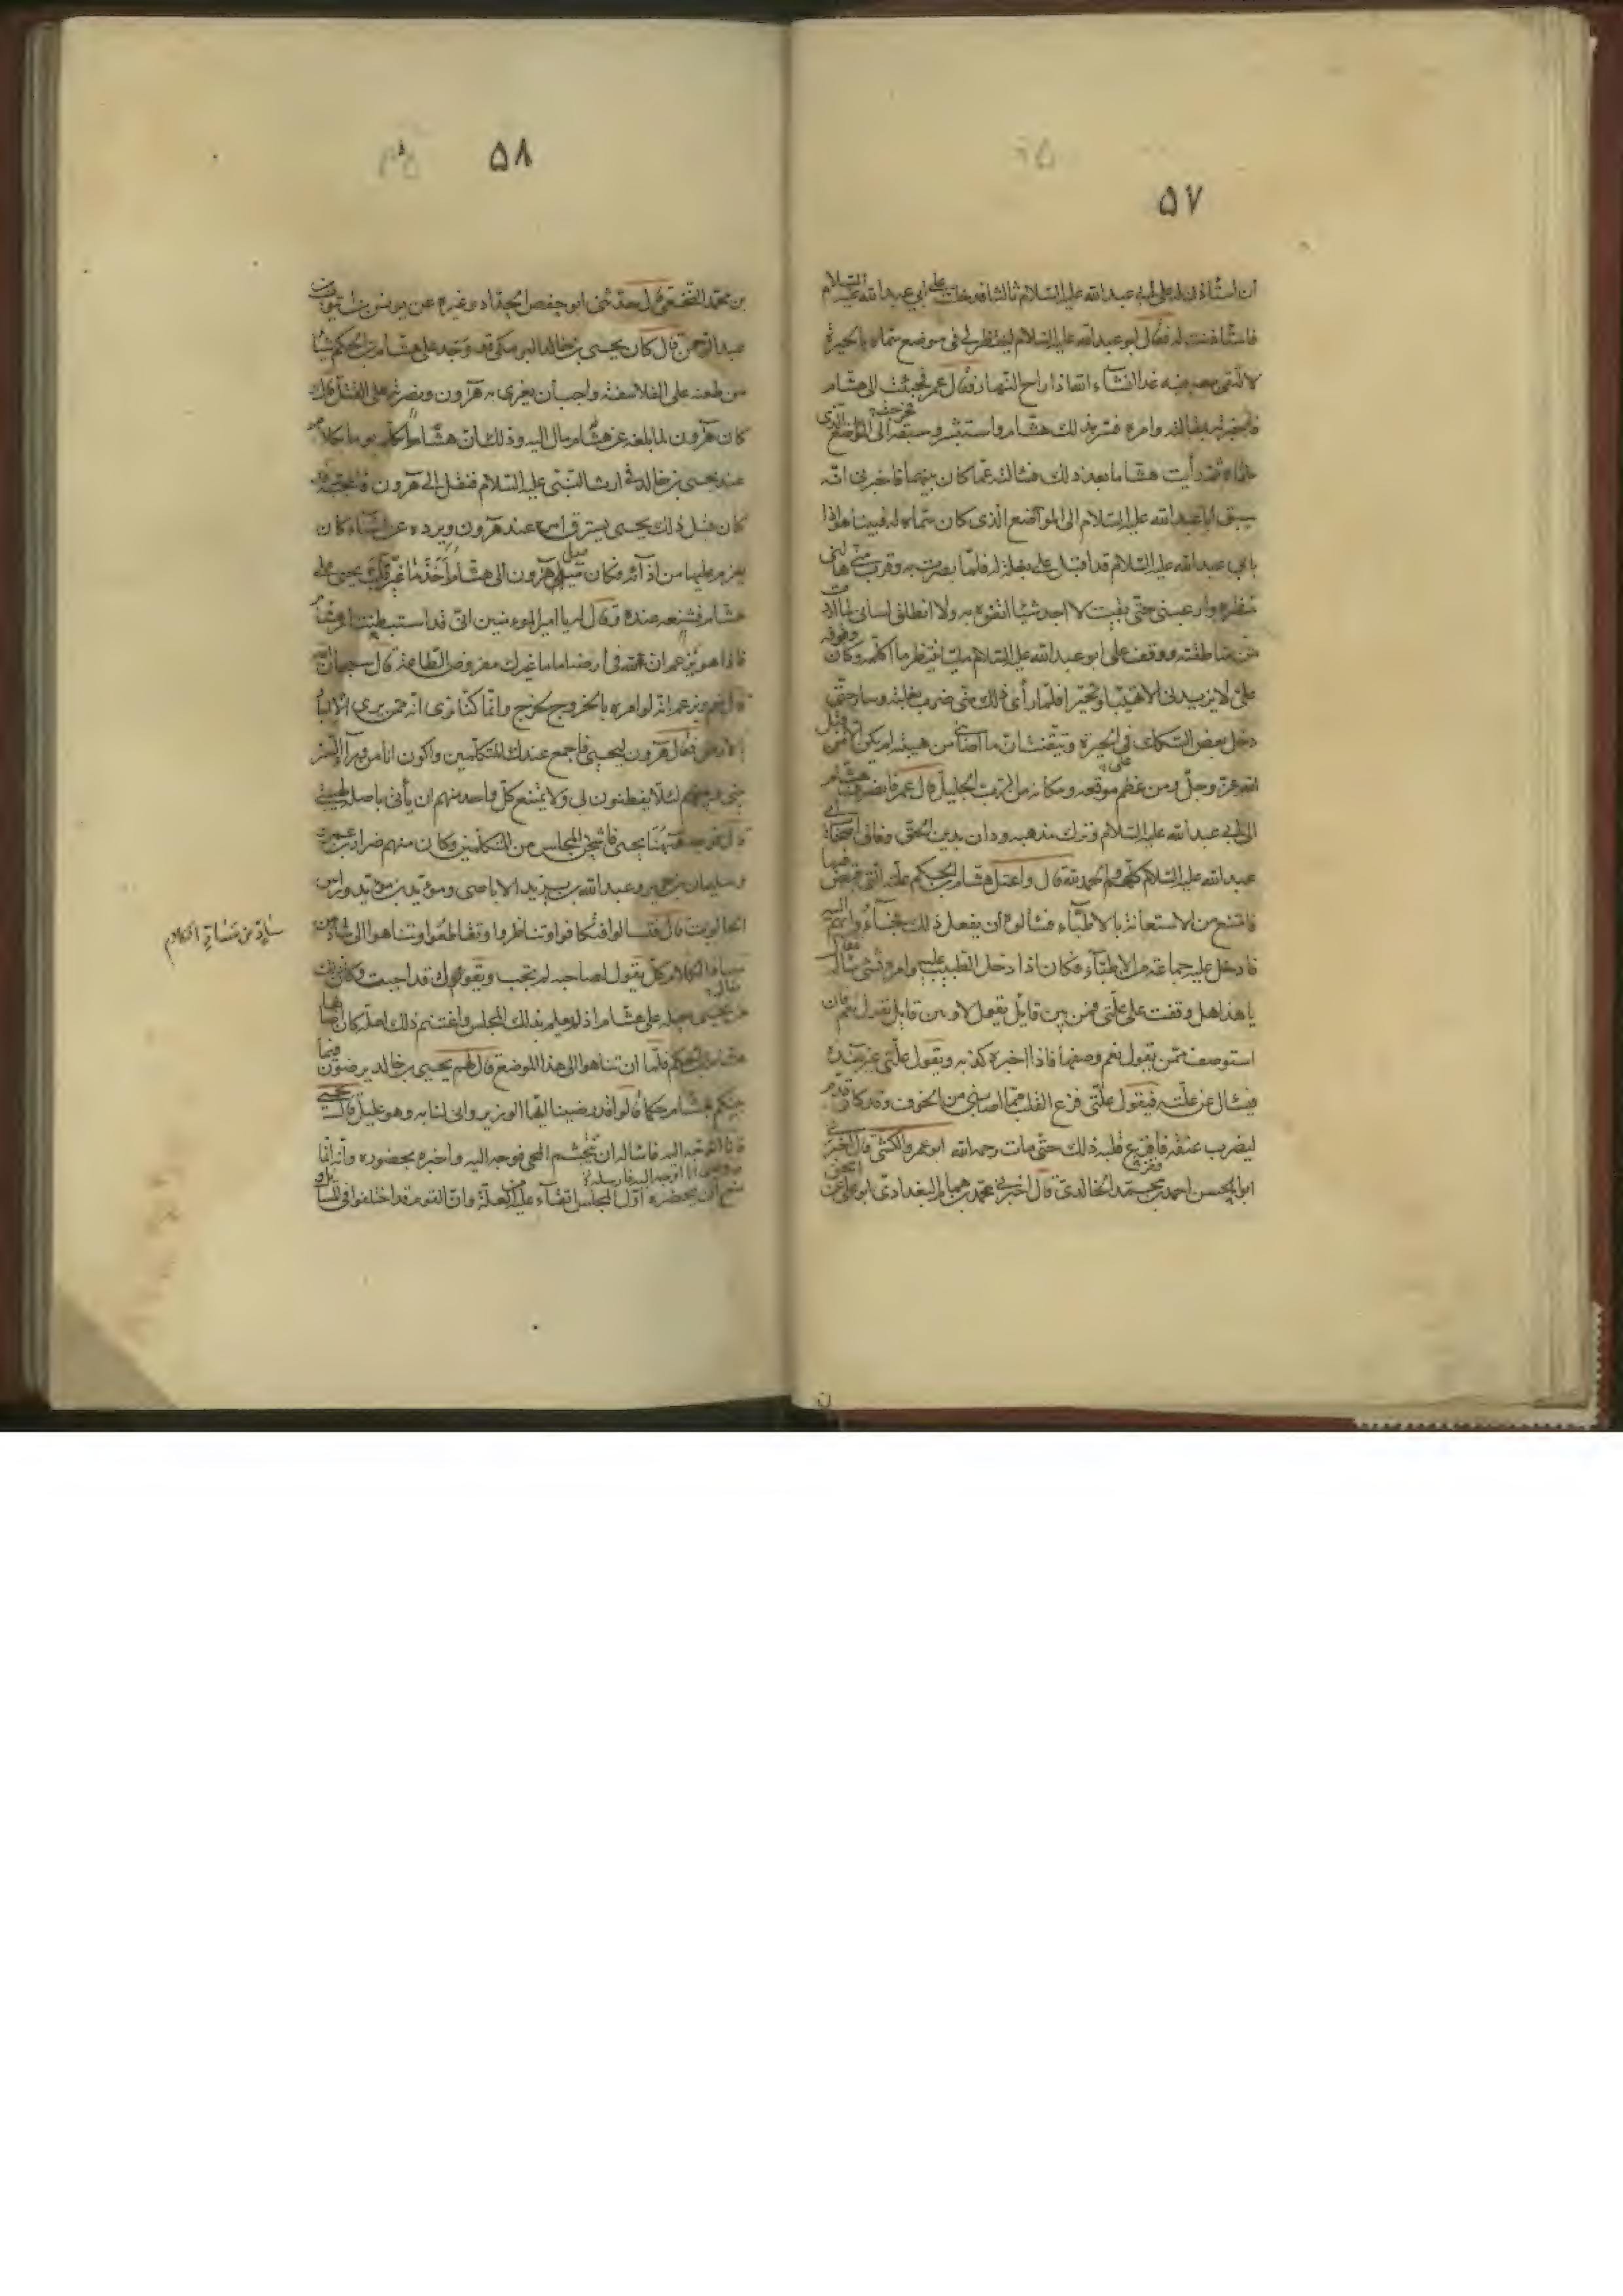 ۵۷
ان استأذن له على ابي عبد الله عليه السلام ثالثا فدخلت على ابي عبد الله عليه السلام
فاستأذنت له فقال ابو عبد الله عليه السلام لينتظرني في موضع سماه بالحيرة
لالتقي معه فيه غدا انشاء الله اذا راح النهار وقال عمر فخرجت الى هشام
فاخبرته بمقالته وامره فسر بذلك هشام واستبشر وسبقه الى الموضع الذي
سماه ثم رأيت هشاما بعد ذلك فسألته عما كان بينهما فاخبرني انه
سبق ابا عبد الله عليه السلام الى الموضع الذي كان سماه له فبينا هو اذا
بابي عبد الله عليه السلام قد اقبل على بغلة له فلما بصرت به وقرب مني هالني
منظره وارعبني حتى بقيت لا اجد شيئا اتفوه به ولا انطلق لساني لما اردت
من مناطقته ووقف على ابو عبد الله عليه السلام مليا ينتظر ما اكلمه وكان وقوفه
على لا يزيدني الا تهيبا وتحيرا فلما رأى ذلك مني ضرب بغلته وسار حتى
دخل بعض السكك في الحيرة وتيقنت ان ما اصابني من هيبته لم يكن الا من قبل
الله عز وجل من عظم موقعه ومكانه من الرب الجليل قال عمر فانصرف هشام
الى ابي عبد الله عليه السلام وترك مذهبه ودان بدين الحق وفاق اصحاب ابي
عبد الله عليه السلام كلهم والحمد لله قال واعتل هشام بن الحكم علته التي قبض فيها
فامتنع من الاستعانة بالاطباء فسألوه ان يفعل ذلك فجاؤا بهم اليه
فادخل عليه جماعة من الاطباء فكان اذا دخل الطبيب عليه وامره بشي سأله
يا هذا هل وقفت على علتي فمن بين قايل يقول لا وبين قايل يقول نعم فان
استوصف ممن يقول نعم وصفها فاذا اخبره كذبه ويقول علتي غير هذه
فيسأل عن علته فيقول علتي فزع القلب مما اصابني من الخوف وقد كان قدم
ليضرب عنقه فافزع قلبه ذلك حتى مات رحمه الله ابو عمرو الكشي قال اخبرني
ابو الحسن احمد بن محمد الخالدي قال اخبرني محمد بن همام البغدادي ابو علي عن اسحق
۵۸
بن محمد النخعي قال حدثني ابو حفص الحداد وغيره عن يونس بن
عبد الرحمن قال كان يحيى بن خالد البرمكي قد وجد على هشام بن الحكم شيئا
من طعنه على الفلاسفة واحب ان يغرى به هرون ونصرته على القتل قال
كان هرون لما بلغه عن هشام مال اليه وذلك ان هشاما تكلم يوما بكلام
عند يحيى بن خالد في ارث النبي عليه السلام فنقل الى هرون فاعجبه
كان قبل ذلك يحيى يسترق امره عند هرون ويرده عن اشياء كان
يعزم عليها من اذآئه فكان ميل هرون الى هشام احد ما غير قلب يحيى على
هشام فشنعه عنده وقال له يا امير المؤمنين اني قد استبطنت امر هشام
فاذا هو يزعم ان لله في ارضه اماما غيرك مفروض الطاعة قال سبحان الله
قال نعم ويزعم انه لو امره بالخروج لخرج وانما كنا نرى انه ممن يرى الالباد
بالارض فقال هرون ليحيى فاجمع عندك المتكلمين واكون انا من وراء الستر
بيني وبينهم لئلا يفطنون لي ولا يمتنع كل واحد منهم ان يأتي باصله لهيبتي
قال فوجه يحيى فاشحن المجلس من المتكلمين وكان منهم ضرار بن عمرو
وسليمان بن جرير وعبد الله بن يزيد الاباضي ومؤبد بن مؤبد ورأس
الجالوت قال فتسالوا فتكافوا وتناظروا وتقاطعوا وتناهوا الى شاذ من
مشاذ الكلام كل يقول لصاحبه لم تجب ويقول قد اجبت وكان ذلك
من يحيى حيلة على هشام اذ لم يعلم بذلك المجلس واغتنم ذلك لعلة كان اصابها
هشام بن الحكم فلما ان تناهوا الى هذا الموضع قال لهم يحيى بن خالد ترضون فيما
بينكم هشام حكما قالوا قد رضينا ايها الوزير وانى لنا به وهو عليل قال يحيى
فانا اوجه اليه فاسأله ان يتجشم المجي فوجه اليه واخبره بحضوره وانه انما
منعه ان يحضره اول المجلس اتقاء عليه من العلة وان القوم قد اختلفوا في المسائل
شاذ من مشاذ الكلام